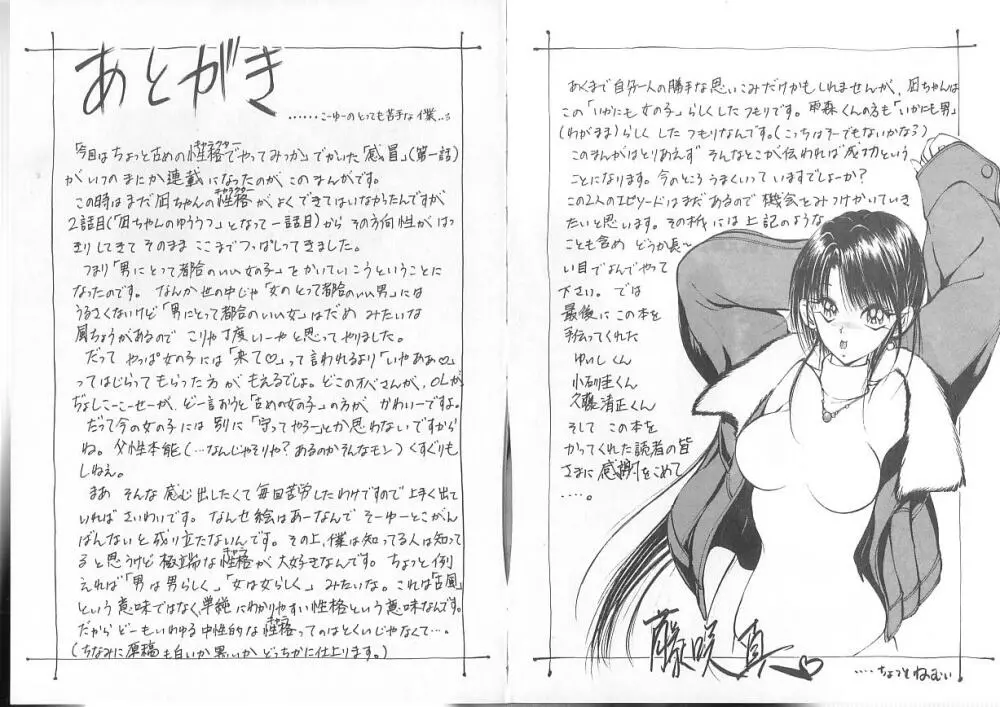 あとがき
……こーゆーのとっても苦手な僕…3
「今回はちょっと古めの性格でやってみっか」でかいた「感冒」(第一話)
がいつのまにか連載になったのが このまんがです。
この時はまだ 凪ちゃんの性格が よくできてはいなかったんですが
2話目(「凪ちゃんのゆううつ」となって一話目)から その方向性がはっ
きりしてきて そのまま ここまでつっぱしってきました。
つまり「男にとって都合のいい女の子」をかいていこうということに
なったのです。 なんか世の中じゃ「女のとって都合のいい男」には
うるさくないけど「男にとって都合のいい女」はだめ みたいな
風ちょうがあるので こりゃ丁度いーや と思ってやりました。
だって やっぱ女の子には「来て♡」って言われるより「いやああ♡」
ってはじらってもらった方が もえるでしょ。どこのオバさんが、OLが
ぢょしこーこーせーが、どー言おうと「古めの女の子」の方が かわいーですよ。
だって今の女の子には 別に「守ってやろー」とか思わないですから
ね。父性本能(…なんじゃそりゃ?あるのかそんなモン)くすぐりも
しねえ。
まあ そんな 感じ出したくて 毎回苦労したわけですので 上手く出て
いれば さいわいです。 なんせ絵はあーなんで そーゆーとこがん
ばんないと 成り立たないんです。その上、僕は知ってる人は知って
ると思うけど 極端な性格が 大好きなんです。ちょっと例
えれば「男は男らしく」「女は女らしく」みたいな。これは「古風」
という意味ではなく、単純にわかりやすい性格という意味なんです。
だから どーもいわゆる中性的な性格ってのはとくいじゃなくて…。
(ちなみに原稿も白いか黒いかどっちかに仕上ります。)
あくまで自分一人の勝手な思いこみだけかもしれませんが、凪ちゃんは
この「いかにも女の子」らしくしたつもりです。雨森くんの方も「いかにも男」
(わがまま)らしく したつもりなんです。(こっちはそーでもないかな?)
このまんがはとりあえず そんなとこが伝われば成功という
ことになります。今のところうまくいっていますでしょーか?
この2人のエピソードはまだあるので 機会をみつけてかいていき
たいと思います。その折には 上記のような
ことも含め どうか長〜
い目でよんでやって
下さい。では
最後に この本を
手伝ってくれた
ゆいしくん
小砂圭くん
久藤清正くん
そして この本を
かってくれた読者の皆
さまに 感謝をこめて
….。
藤咲真♡
….ちょっとねむい